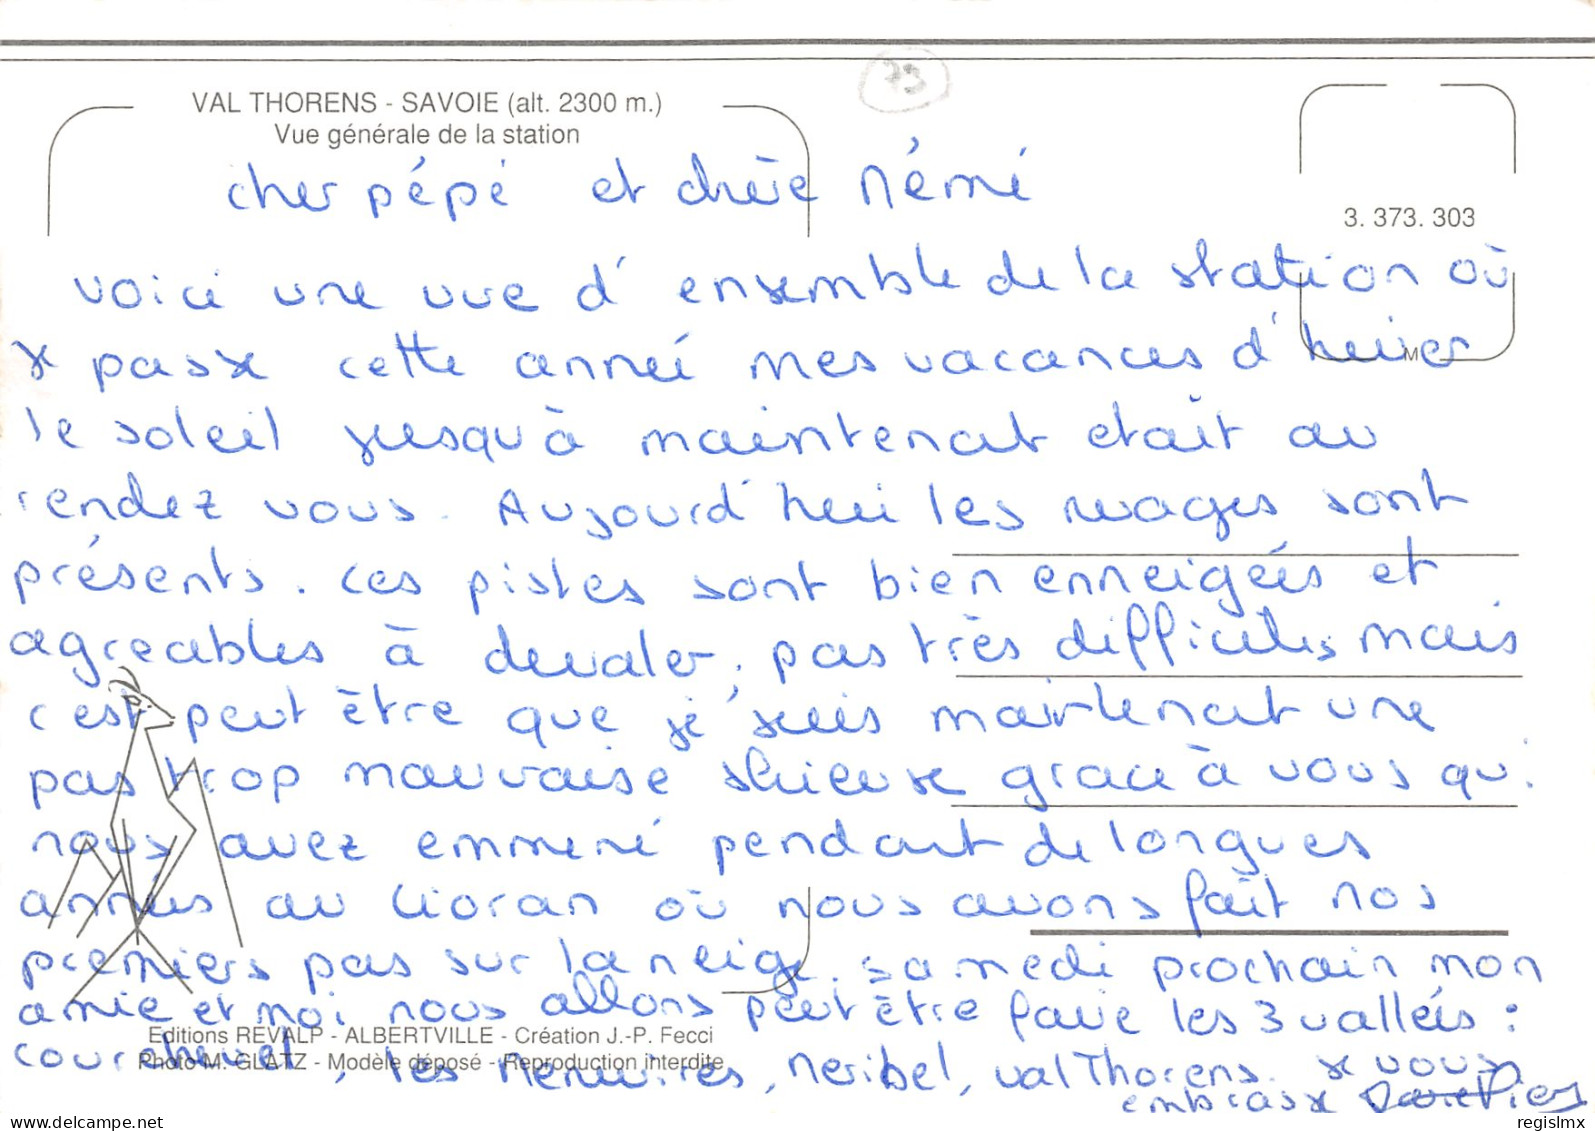 79
VAL THORENS - SAVOIE (alt. 2300 m.)
Vue générale de la station
cher pépé et chère Mémé
3. 373. 303
voici une vue d'ensemble de la station où
je passe cette année mes vacances d'hiver
M
le soleil jusqu'à maintenant etait au
rendez vous. Aujourd'hui les nuages sont
présents. Les pistes sont bien enneigées et
agreables à devaler, pas très difficiles, mais
c'est peut être que je suis maintenant une
pas trop mauvaise skieuse grace à vous qui
nous avez emmené pendant de longues
années au Lioran où nous avons fait nos
premiers pas sur la neige. samedi prochain mon
amie et moi nous allons peut être faire les 3 vallées :
Editions REVALP - ALBERTVILLE - Création J.-P. Fecci
courchevel, les Menuires, Meribel, val Thorens. je vous
Photo M. GLATZ - Modèle déposé - Reproduction interdite
embrasse
delcampe.net
regislmx